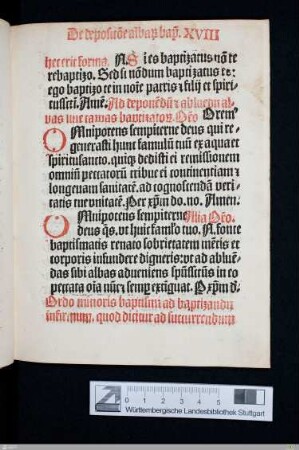 De depositiõe albaꝝ bap. XVIII
hec erit forma. N. Si es baptizatus nõ te
rebaptizo. Sed si nõdum baptizatus es:
ego baptizo te in noïe patris ⁊ filij et spi-
ritussctĩ. Amẽ. Ad deponẽdũ ⁊ abluendũ al-
bas siue
baptizatoꝝ. Orõ
Orem⁹
OMnipotens sempiterne deus qui re-
generasti hunc famulũ tuũ ex aqua et
spiritusancto. quiqꝫ dedisti ei remissionem
omniũ peccatorũ tribue ei continentiam ⁊
longeuam sanitatẽ. ad cognoscendã veri-
tatis tue vnitatẽ. Per xp̃m do. no. Amen.
OMnipotens sempiterne Alia Orõ.
deus q̃s. vt huic famľo tuo. N. fonte
baptismatis renato sobrietatem mẽtis et
corporis infundere digneris: vt ad abluẽ-
das sibi albas adueniens sp̃ussctũs in eo
peccata oĩa nũc ⁊ semꝑ extinguat. P xp̃m d.
Ordo minoris baptismi ad baptizandũ
infirmum. quod dicitur ad succurrendum
cm 0 1 2 3 4 5
Württembergische Landesbibliothek Stuttgart